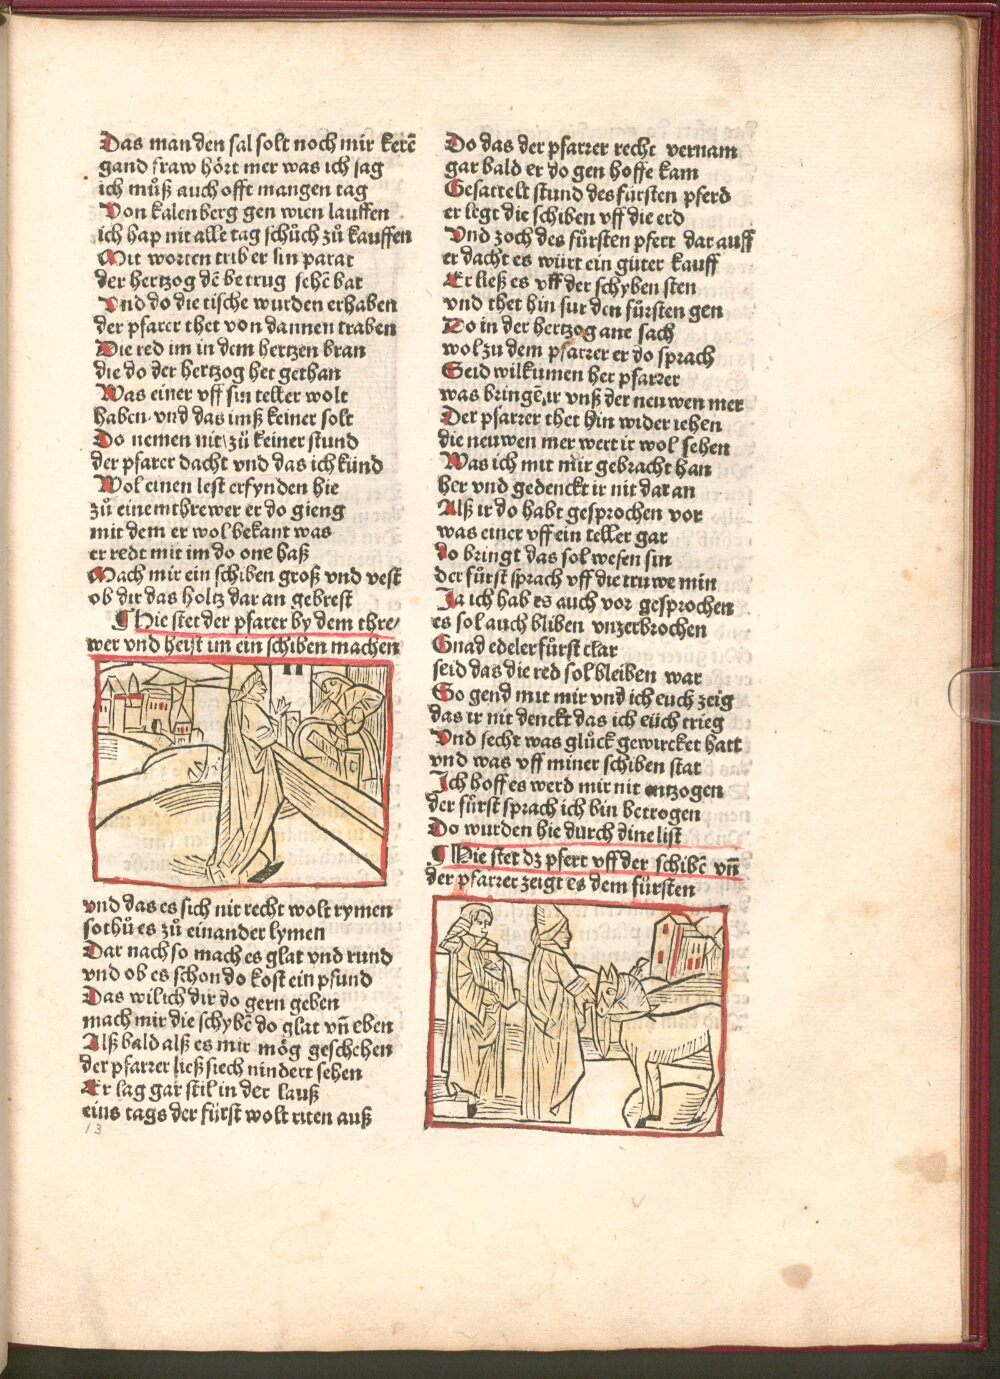 Das man den sal solt noch mir kerẽ
gand fraw hört mer was ich sag
ich můß auch offt mangen tag
Von kalenberg gen wien lauffen
ich hap nit alle tag schůch zů kauffen
Mit worten trib er sin parat
der hertzog dẽ betrug sehẽ bat
Vnd do die tische wurden erhaben
der pfarer thet von dannen traben
Die red im in dem hertzen bran
die do der hertzog het gethan
Was einer vff sin teller wolt
haben vnd das imß keiner solt
Do nemen nit zů keiner stund
der pfarer dacht vnd das ich kůnd
Wol einen lest erfynden hie
zů einem threwer er do gieng
mit dem er wol bekant was
er redt mit im do one haß
Mach mir ein schiben groß vnd vest
ob dir das holtz dar an gebrest
¶ Hie stet der pfarer by dem thre⸗
wer vnd heist im ein schiben machen
vnd das es sich nit recht wolt rymen
so thů es zů einander lymen
Dar nach so mach es glat vnd rund
vnd ob es schon do kost ein pfund
Das wil ich dir do gern geben
mach mir die schybẽ do glat vñ eben
Alß bald alß es mir mög geschehen
der pfarrer ließ siech nindert sehen
Er lag gar stil in der lauß
eins tags der fürst wolt riten auß
13
Do das der pfarrer recht vernam
gar bald er do gen hoffe kam
Gesattelt stund des fürsten pferd
er legt die schiben vff die erd
Vnd zoch des fürsten pfert dar auff
er dacht es würt ein güter kauff
Er ließ es vff der schyben sten
vnd thet hin für den fürsten gen
Do in der hertzog ane sach
wol zu dem pfarrer er do sprach
Seid wilkumen her pfarrer
was bringẽ ir vnß der neuwen mer
Der pfarrer thet hin wider iehen
die neuwen mer wert ir wol sehen
Was ich mit mir gebracht han
her vnd gedenckt ir nit dar an
Alß ir do habt gesprochen vor
was einer vff ein teller gar
do bringt das sol wesen sin
der fürst sprach vff die truwe min
Ja ich hab es auch vor gesprochen
es sol auch bliben vnzerbrochen
Gnad edeler fürst clar
seid das die red sol bleiben war
So gend mit mir vnd ich euch zeig
das ir nit denckt das ich eüch trieg
Vnd secht was glück gewircket hatt
vnd was vff miner schiben stat
Ich hoff es werd mir nit entzogen
der fürst sprach ich bin betrogen
Do wurden hie durch dine list
¶ Hie stet dz pfert vff der schibẽ vñ
der pfarrer zeigt es dem fürsten